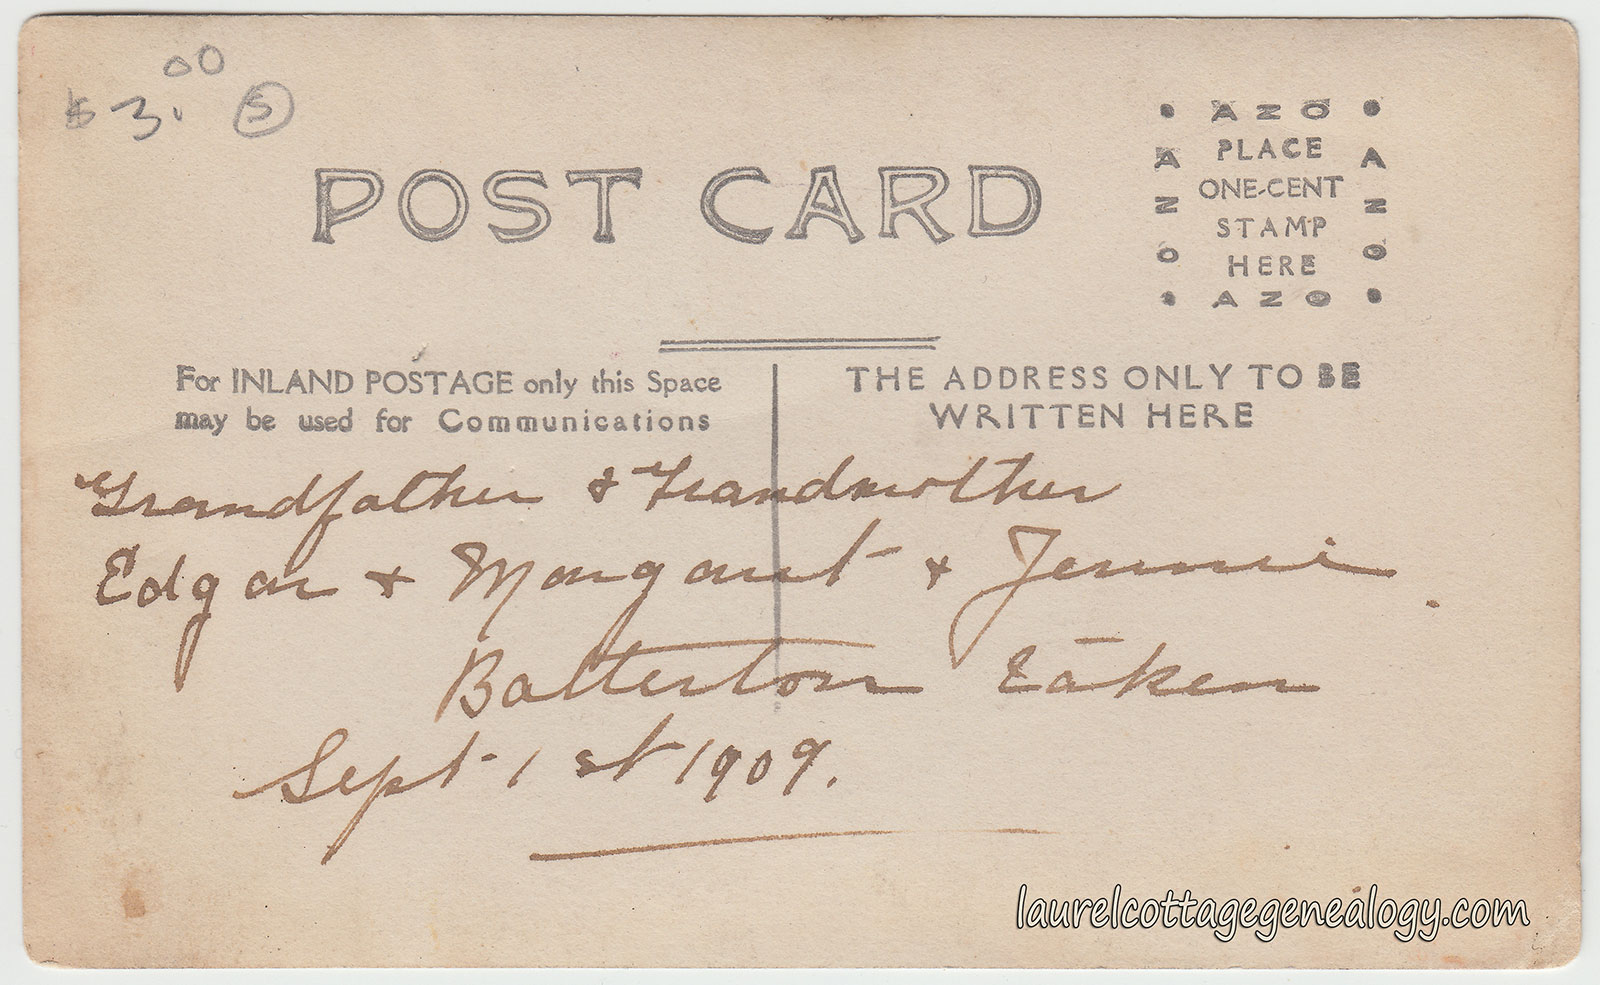 $3.00 S
POST CARD
AZO
AZO
PLACE
ONE-CENT
STAMP
HERE
AZO
AZO
For INLAND POSTAGE only this Space
may be used for Communications
THE ADDRESS ONLY TO BE
WRITTEN HERE
Grandfather & Grandmother
Edgar & Margaret & Jennie
Batterton Eaken
Sept 1st 1909.
laurelcottagegenealogy.com